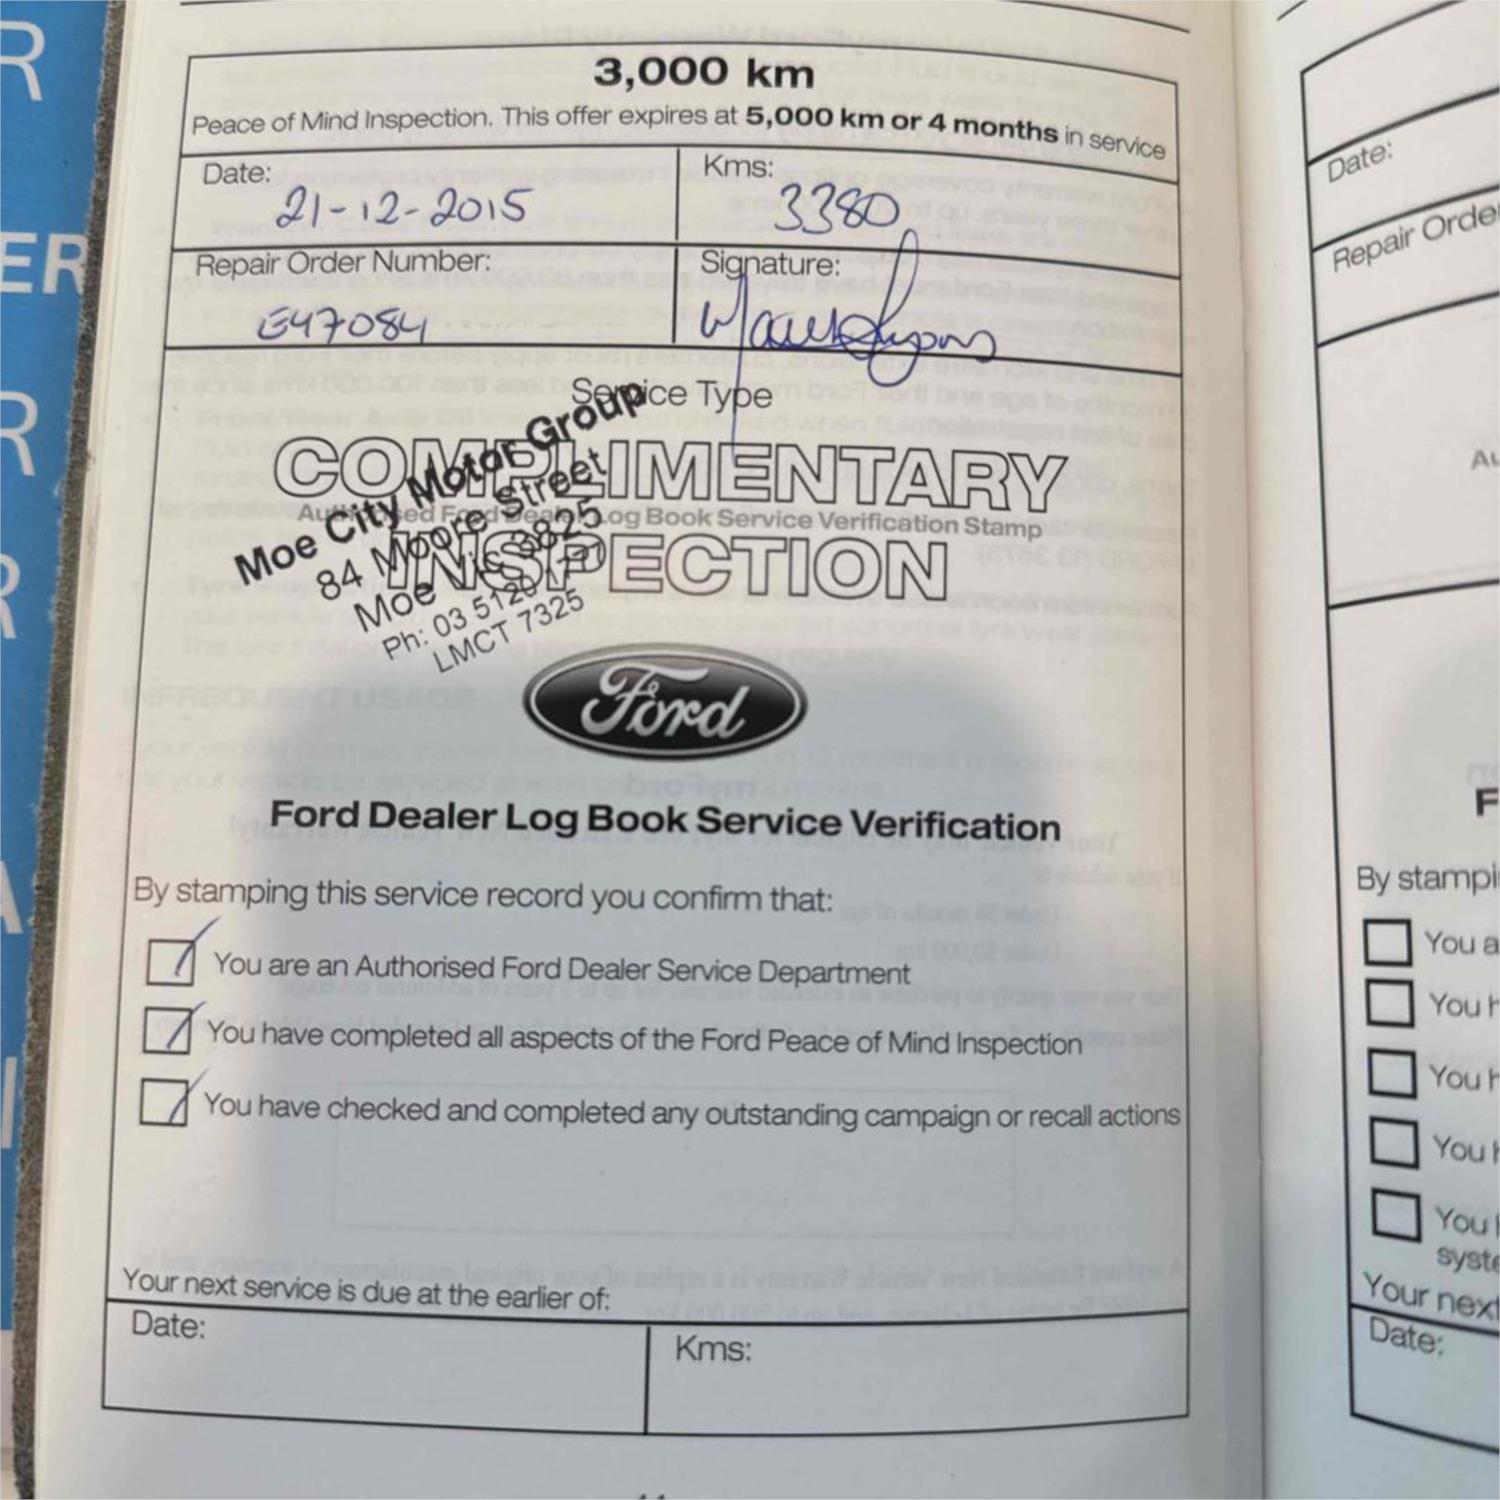 3,000 km
Peace of Mind Inspection. This offer expires at 5,000 km or 4 months in service
Date:
21-12-2015
Kms:
3380
Repair Order Number:
E47084
Signature:
Service Type
COMPLIMENTARY
Authorised Ford Dealer Log Book Service Verification Stamp
INSPECTION
Moe City Motor Group
84 Moore Street
Moe Vic 3825
Ph: 03 5120 1777
LMCT 7325
Ford
Ford Dealer Log Book Service Verification
By stamping this service record you confirm that:
You are an Authorised Ford Dealer Service Department
You have completed all aspects of the Ford Peace of Mind Inspection
You have checked and completed any outstanding campaign or recall actions
Your next service is due at the earlier of:
Date:
Kms:
Date:
Repair Orde
By stampi
You a
You h
You h
You h
You h
syste
Your next
Date:
R
ER
R
R
A